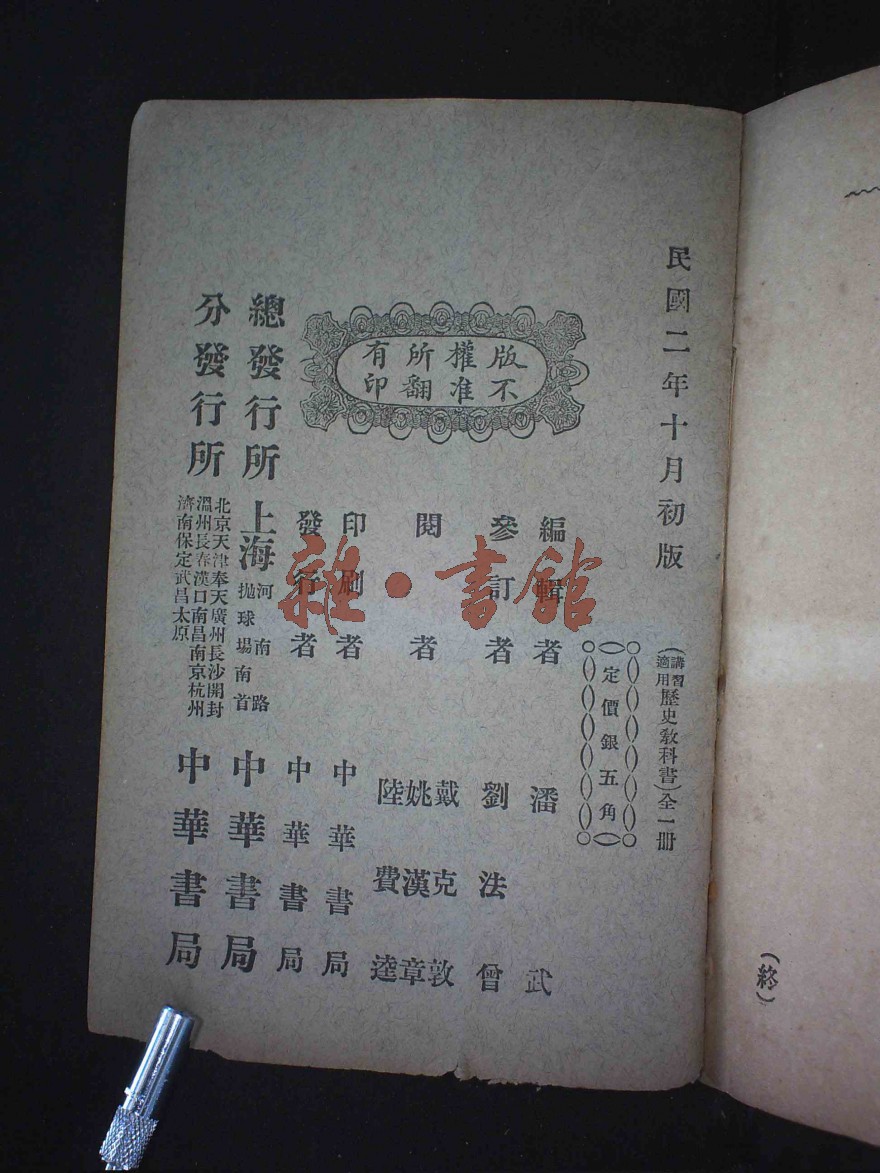 (終)
民國二年十月初版
(講習適用歷史敎科書)全一冊
(定價銀五角)
版權所有
不准翻印
編輯者 潘武
參訂者 劉法曾
閱者 戴克敦
姚漢章
陸費逵
印刷者 中華書局
發行者 中華書局
總發行所 上海 河南路
拋球場南首 中華書局
分發行所 北京天津奉天廣州長沙開封
溫州長春漢口南昌南京杭州
濟南保定武昌太原 中華書局
雜·書館